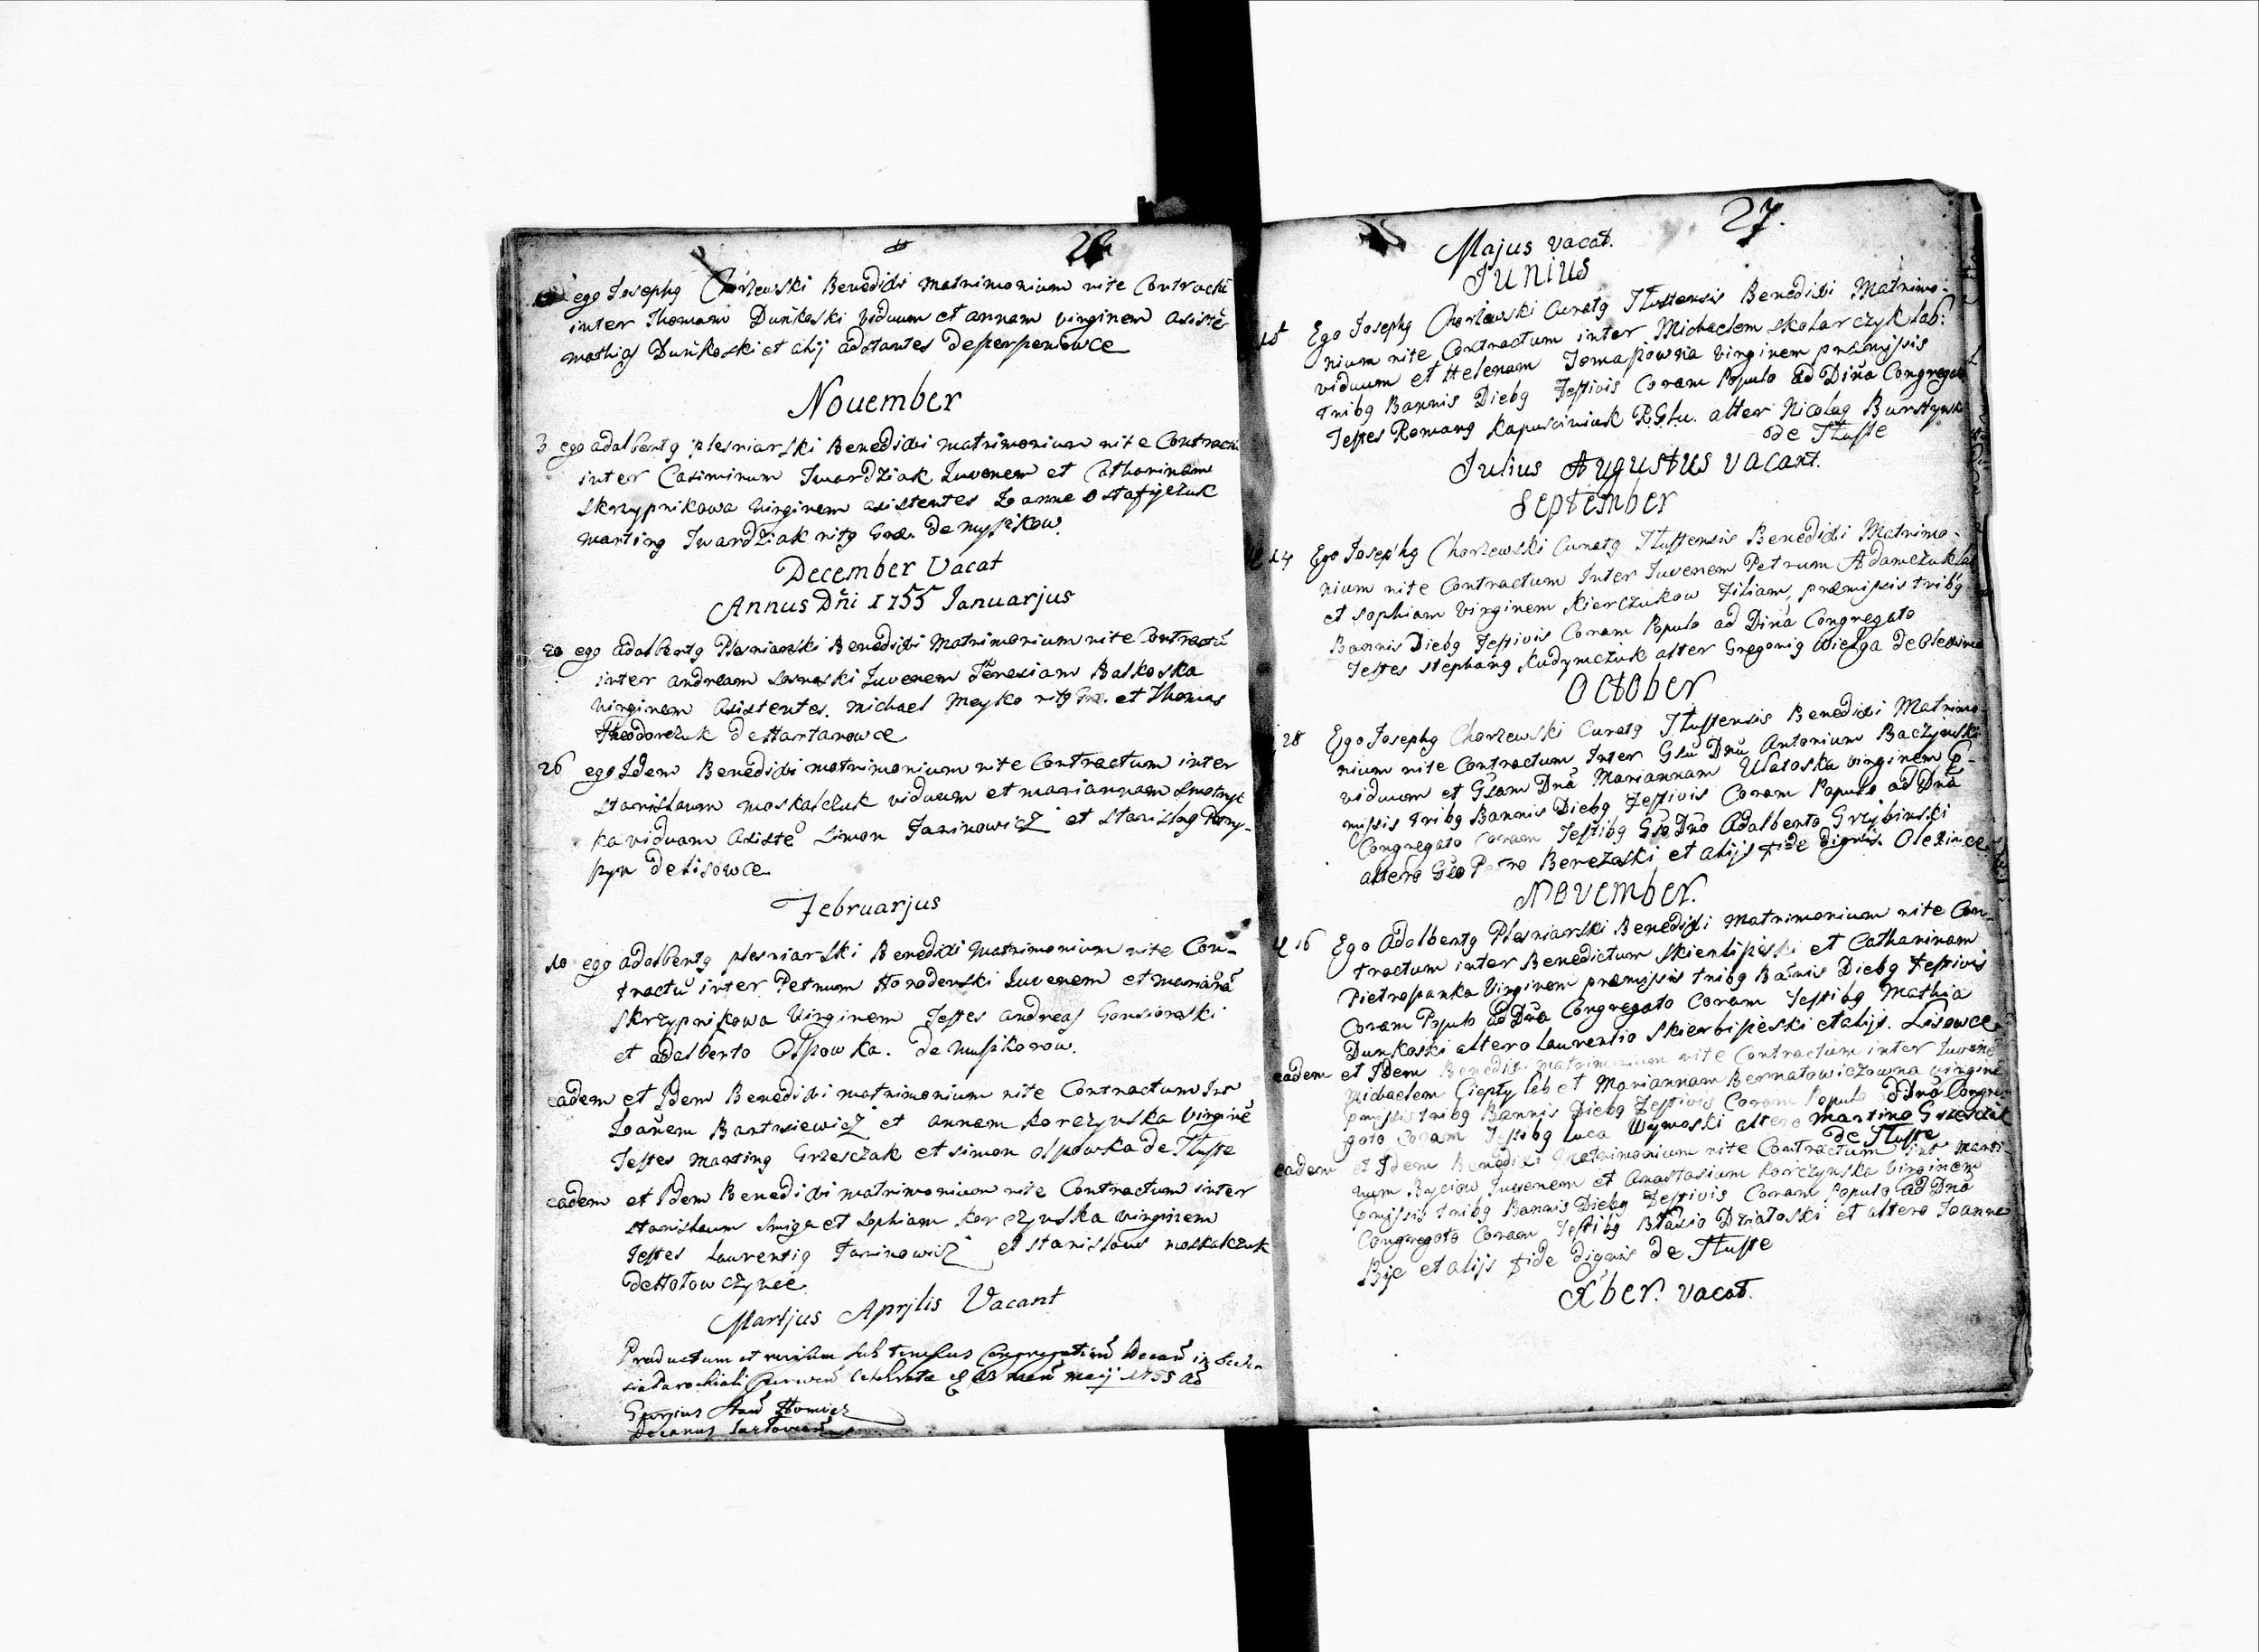 26
ego Josephg Chorzewski Benedixi Matrimonium rite Contractū
inter Thomam Duńkoski viduum et annam virginem asistē
mathias Duńkoski et alij adstantes
November
3 ego adalbertg plesniarski Benedixi matrimonium rite Contractū
inter Casimirum Twardziak Juvenem et Catharinam
Skrzypnikowa virginem asistentes Joanne Ostafijczuk
marting Twardziak ritg Græ. de
December Vacat
Annus Dñi 1755 Januarjus
20 ego adalbertg Plesniarski Benedixi Matrimonium rite Contractū
inter andream Juvenem Teresiam Baskoska
virginem Asistentes. michael Meyko ritg Græ. et Thomas
Theodorczuk de Hartanowce
26 ego Idem Benedixi matrimonium rite Contractum inter
stanislaum moskalczuk viduum et mariannam
ka viduam Asistē Simon Janinowicz et stanislag
de Lisowce.
Februarjus
10 ego adalbertg plesniarski Benedixi Matrimonium rite Con-
tractū inter Petrum Horodenski Juvenem et mariānā
Skrzypnikowa Virginem Testes andreas Gonsiorski
et adalberto Ospowka. de
eadem et Idem Benedixi matrimonium rite Contractum Int
Joānem Bartosiewicz et annam Korczynska Virginē
Testes Marting Grzesczak et simon ospowka de Tłuste
eadem et Idem Benedixi matrimonium rite Contractum inter
stanislaum et Sophiam Korczynska virginem
Testes Laurentig Janinowicz et stanislaus moskalczuk
de Hołowczynce
Martjus Aprjlis Vacant
Productum et revisum sub tempus Congregationis Decanū in Eccle-
sia Parochiali celebrata maij 1755 ao
Decanus
27.
Majus vacat.
Junius
15 Ego Josephg Chorzewski Curatg Tłustensis Benedixi Matrimo-
nium rite Contractum inter Michaelem Skolarczyk Lab:
viduum et Helenam Tomaszowna Virginem præmissis
tribg Bannis Diebg Festivis Coram Populo ad Divina Congregato
Testes Romang Kapusciniak alter Nicolag
de Tłuste
Julius Augustus vacant.
September
14 Ego Josephg Chorzewski Curatg Tłustensis Benedixi Matrimo-
nium rite Contractum Inter Juvenem Petrum Adamczuk Lab
et Sophiam Virginem Kierczukow Filiam, præmissis tribg
Bannis Diebg Festivis Coram Populo ad Divina Congregato
Testes Stephang Kudymczuk alter Gregorig Wielga de
October
28 Ego Josephg Chorzewski Curatg Tłustensis Benedixi Matrimo-
nium rite Contractum Inter Gsū Dnū Antonium Baczynski
viduum et Gsam Dnā Mariannam Ulatoska virginem p-
missis tribg Bannis Diebg Festivis Coram Populo ad Dnā
Congregato Coram Testibg Gso Dno Adalberto Grzybinski
altero Gso Petro Berezoski et alijs fide dignis. Olexince.
November.
16 Ego Adalbertg Plesniarski Benedixi Matrimonium rite Con-
tractum inter Benedictum et Catharinam
Pietroszanka Virginem præmissis tribg Bānis Diebg Festivis
Coram Populo ad Dnā Congregato Coram Testibg Mathia
Dunkoski altero Laurentio et alijs. Lisowce
eadem et Idem Benedixi matrimonium rite Contractum inter Juvenē
Michaelem Ciepły Lab et Mariannam Bernatowiczowna virginē
pmissis tribg Bannis Diebg Festivis Coram Populo ad Dnā Congre-
gato Coram Testibg Luca altero Martino Grzesczak
de Tłuste
eadem et Idem Benedixi Matrimonium rite Contractum int Marti-
num Juvenem et Anastasiam Korczynska virginem
pmissis tribg Bannis Diebg Festivis Coram Populo ad Dnā
Congregato Coram Testibg Błasio Działoski et altero Joanne
et alijs fide dignis de Tłuste
Xber. vacat.